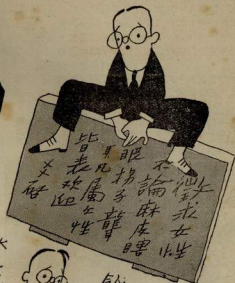 徵求女性
不論麻皮瞎
眼拐子聾
凡屬女性
皆表歡迎
啓